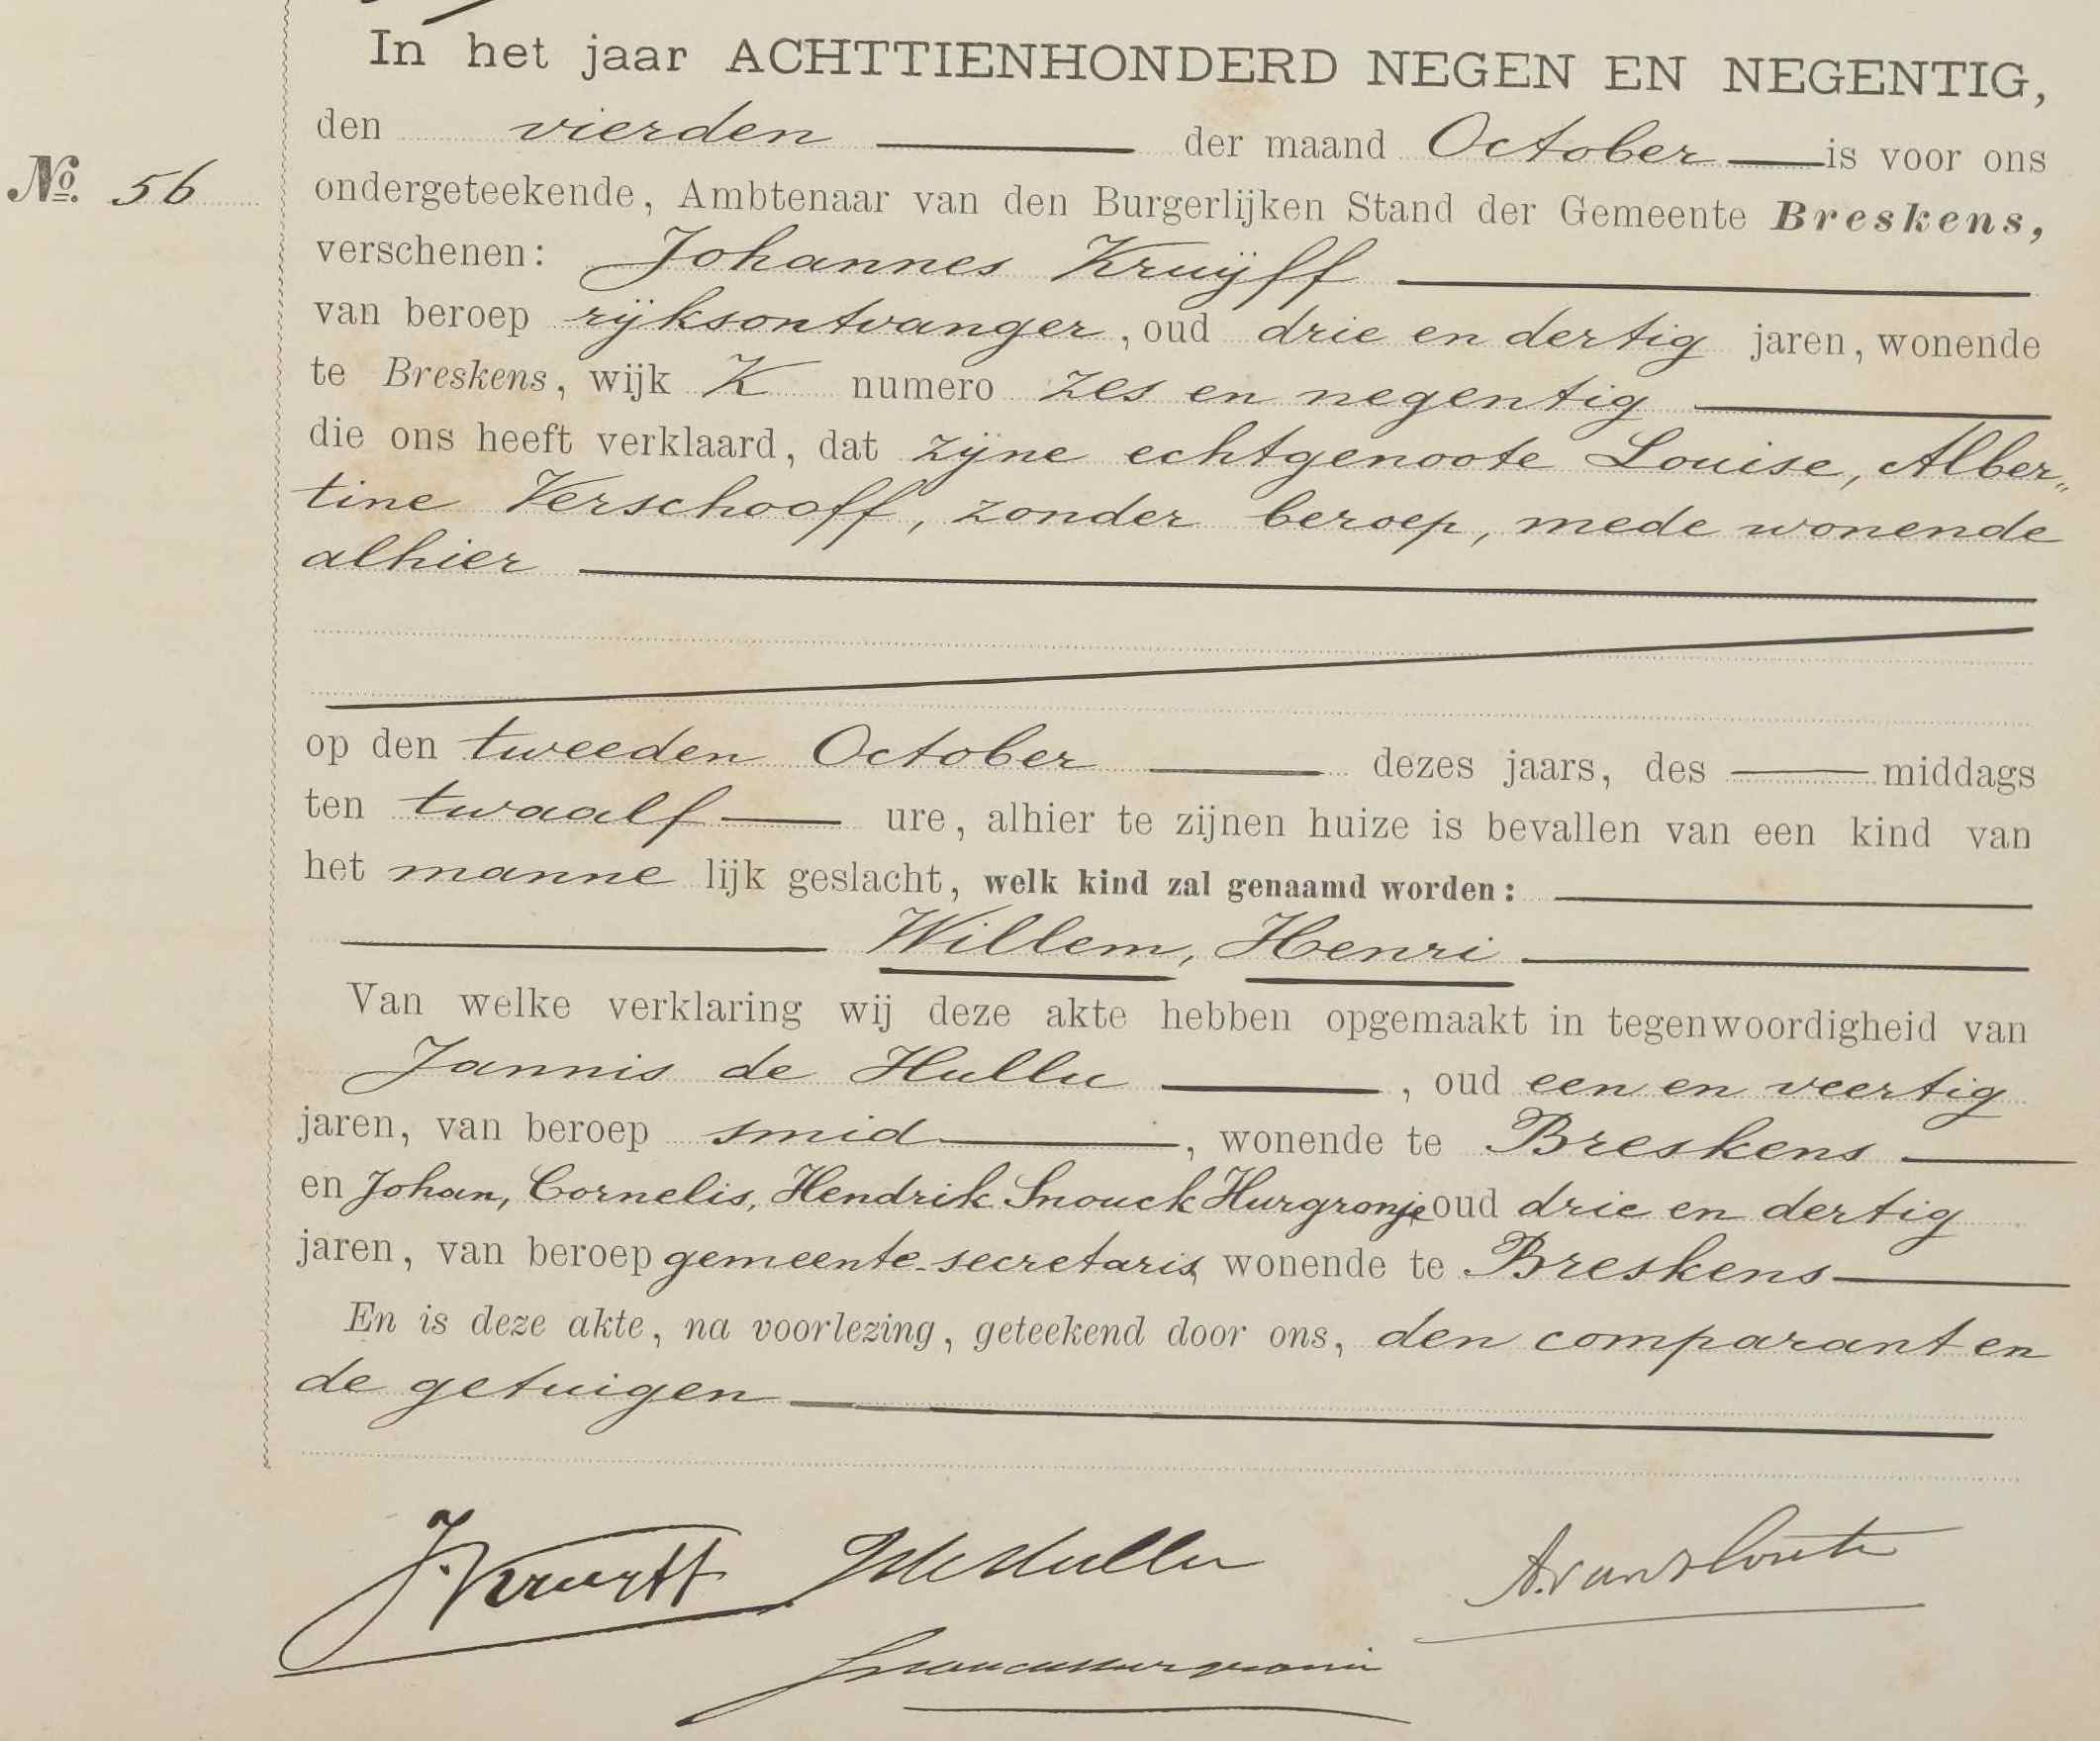 In het jaar ACHTTIENHONDERD NEGEN EN NEGENTIG,
den vierden der maand October is voor ons
No. 56
ondergeteekende, Ambtenaar van den Burgerlijken Stand der Gemeente Breskens,
verschenen: Johannes Kruijff
van beroep rijksontvanger, oud drie en dertig jaren, wonende
te Breskens, wijk K numero zes en negentig
die ons heeft verklaard, dat zijne echtgenoote Louise, Alber„
tine Verschooff, zonder beroep, mede wonende
alhier
op den tweeden October dezes jaars, des middags
ten twaalf ure, alhier te zijnen huize is bevallen van een kind van
het manne lijk geslacht, welk kind zal genaamd worden:
Willem, Henri
Van welke verklaring wij deze akte hebben opgemaakt in tegenwoordigheid van
Jannis de Hullu, oud een en veertig
jaren, van beroep smid, wonende te Breskens
en Johan, Cornelis, Hendrik Snouck Hurgronje oud drie en dertig
jaren, van beroep gemeente-secretaris, wonende te Breskens
En is deze akte, na voorlezing, geteekend door ons, den comparant en
de getuigen
J. Kruijff JdeHullu
SnouckHurgronje